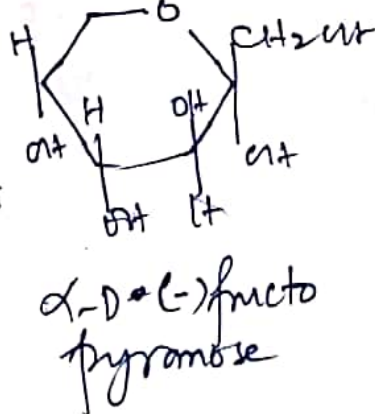 O
H
CH2OH
H
OH
OH
OH
OH
H
α-D-(-)fructo
pyramose